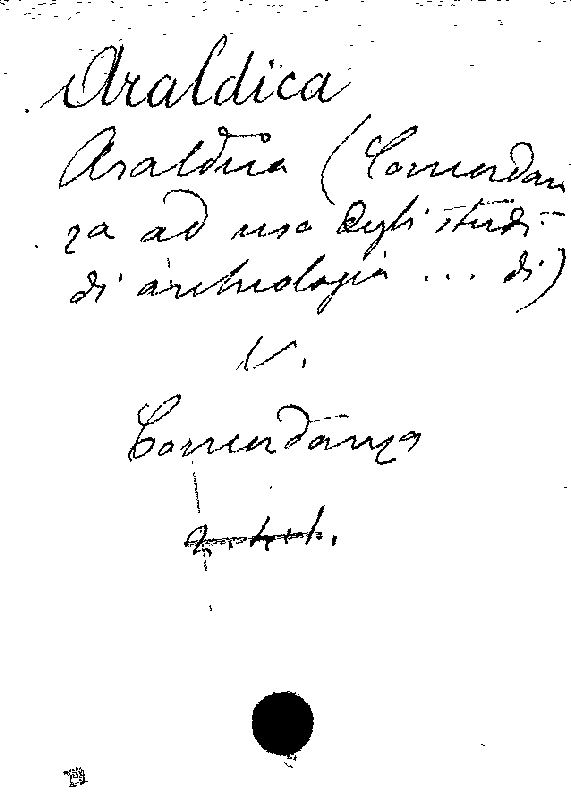 Araldica
Araldica (Concordan
za ad uso degli studi
di archeologia ... di)
V.
Concordanza